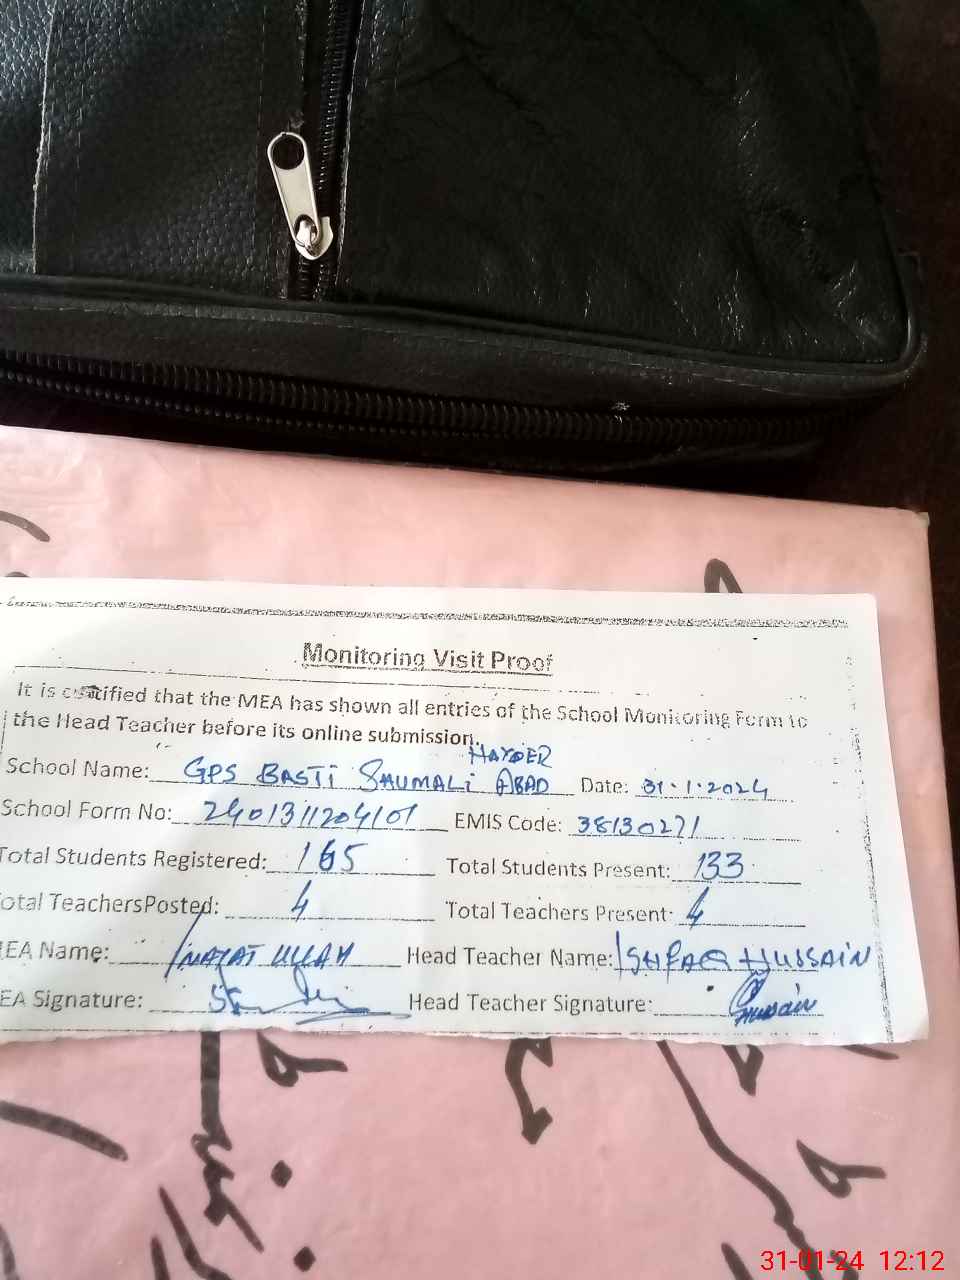 Monitoring Visit Proof
It is certified that the MEA has shown all entries of the School Monitoring Form to
the Head Teacher before its online submission.
HAYDER
School Name: GPS BASTI SAUMALI ABAD Date: 31.1.2024
School Form No: 2401311204101 EMIS Code: 38130271
Total Students Registered: 165 Total Students Present: 133
otal TeachersPosted: 4 Total Teachers Present: 4
EA Name: INAYAT ULLAH Head Teacher Name: ISHFAQ HUSSAIN
EA Signature: Head Teacher Signature: Hussain
31-01-24 12:12